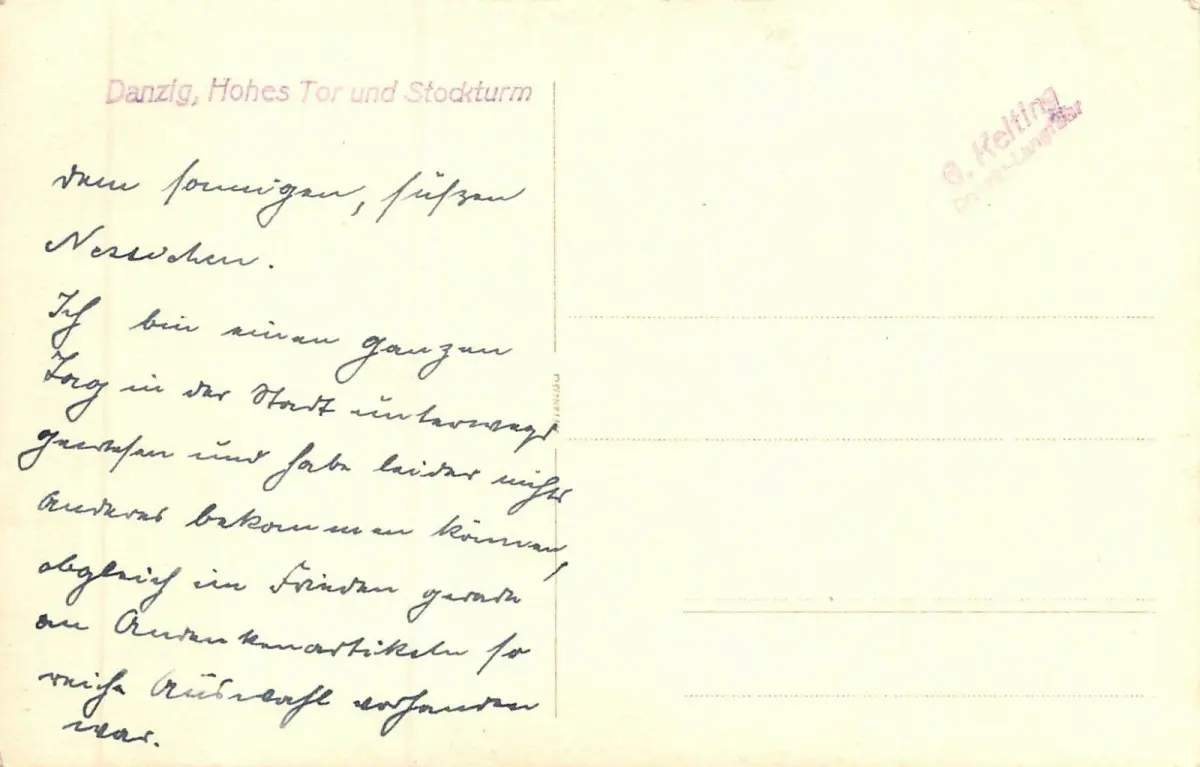 Danzig, Hohes Tor und Stockturm
G. Kelting
dem sonnigen, süßen
Ich bin einen ganzen
Tag in der Stadt unterwegs
gewesen und habe leider nichts
Anderes bekommen können,
obgleich im Frieden gerade
an Andenkenartikeln so
reiche Auswahl vorhanden
war.